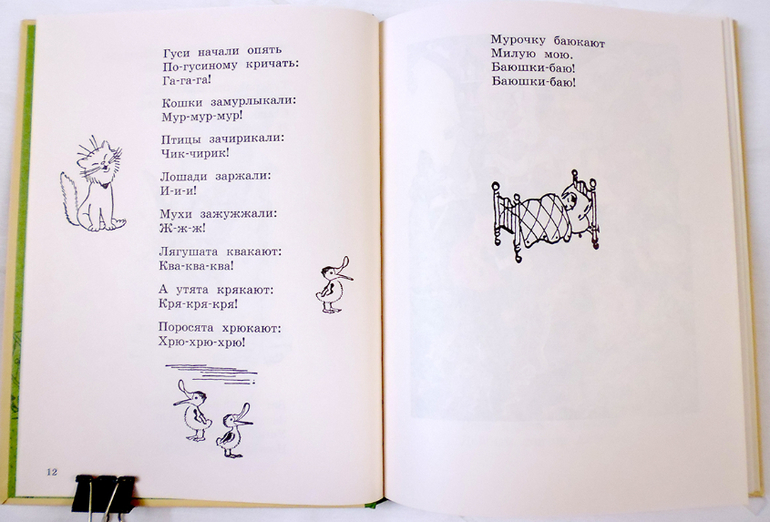 Гуси начали опять
По-гусиному кричать:
Га-га-га!
Кошки замурлыкали:
Мур-мур-мур!
Птицы зачирикали:
Чик-чирик!
Лошади заржали:
И-и-и!
Мухи зажужжали:
Ж-ж-ж!
Лягушата квакают:
Ква-ква-ква!
А утята крякают:
Кря-кря-кря!
Поросята хрюкают:
Хрю-хрю-хрю!
12
Мурочку баюкают
Милую мою.
Баюшки-баю!
Баюшки-баю!